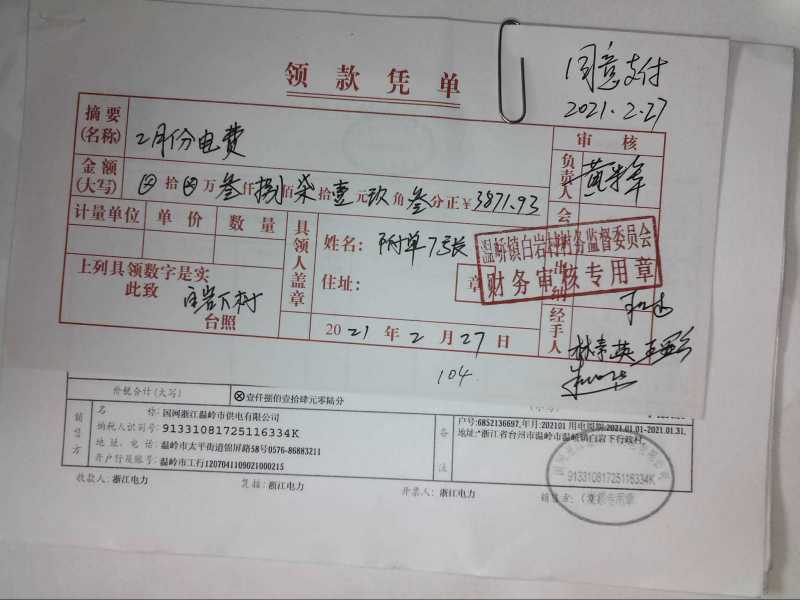 领款凭单
同意支付
2021.2.27
摘要(名称) 2月份电费
审核
金额(大写) ⊗拾⊗万叁仟捌佰柒拾壹元玖角叁分正¥3871.93
负责人
计量单位 单价 数量
具领人盖章
姓名: 附单7张
住址: 章
温峤镇白岩村财务监督委员会
财务审核专用章
上列具领数字是实
此致
台照
2021年2月27日
经手人 林素英
104
价税合计(大写) ⊗壹仟捌佰壹拾肆元零陆分
销售方
名称: 国网浙江温岭市供电有限公司
纳税人识别号: 91331081725116334K
地址、电话: 温岭市太平街道锦屏路58号0576-86883211
开户行及账号: 温岭市工行1207041109021000215
备注
户号:6852136697,年月:202101 用电周期:2021.01.01-2021.01.31,
地址:*浙江省台州市温岭市温峤镇白岩下行政村.
91331081725116334K
收款人: 浙江电力 复核: 浙江电力 开票人: 浙江电力 销售方: (章)